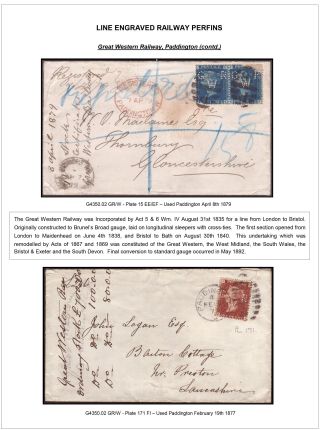 LINE ENGRAVED RAILWAY PERFINS
Great Western Railway, Paddington (contd.)
Registered
8 April 1879
W. O. Maclaine Esq
Thornbury
Gloucestershire
G4350.02 GR/W - Plate 15 EE/EF – Used Paddington April 8th 1879
The Great Western Railway was Incorporated by Act 5 & 6 Wm. IV August 31st 1835 for a line from London to Bristol.
Originally constructed to Brunel's Broad gauge, laid on longitudinal sleepers with cross-ties. The first section opened from
London to Maidenhead on June 4th 1838, and Bristol to Bath on August 30th 1840. This undertaking which was
remodelled by Acts of 1867 and 1869 was constituted of the Great Western, the West Midland, the South Wales, the
Bristol & Exeter and the South Devon. Final conversion to standard gauge occurred in May 1892.
Great Western Rly
Ordinary Stock
John Logan Esq.
Barton Cottage
Nr. Preston
Lancashire
Pl. 171.
G4350.02 GR/W - Plate 171 FI – Used Paddington February 19th 1877